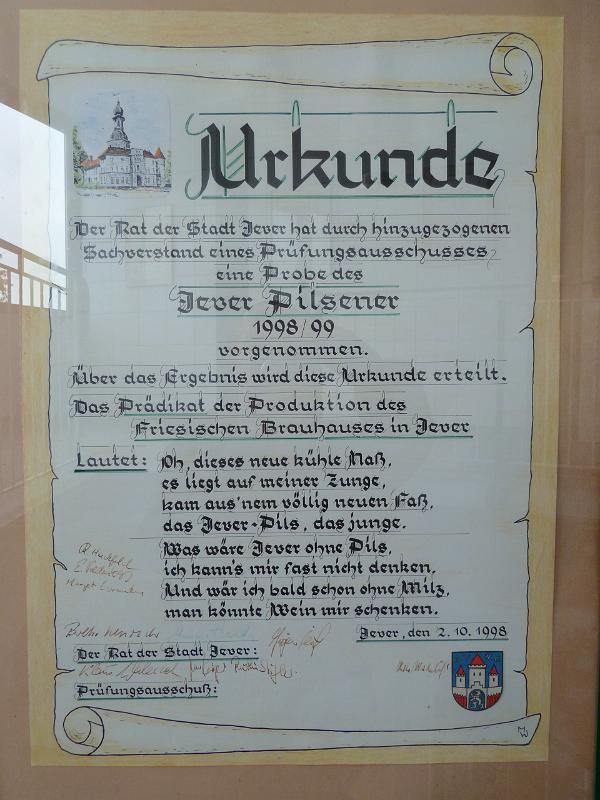 Urkunde
Der Rat der Stadt Jever hat durch hinzugezogenen
Sachverstand eines Prüfungsausschusses,
eine Probe des
Jever Pilsener
1998/99
vorgenommen.
Über das Ergebnis wird diese Urkunde erteilt.
Das Prädikat der Produktion des
Friesischen Brauhauses in Jever
Lautet:
Oh, dieses neue kühle Naß,
es liegt auf meiner Zunge,
kam aus'nem völlig neuen Faß,
das Jever-Pils, das junge.
Was wäre Jever ohne Pils,
ich kann's mir fast nicht denken,
Und wär ich bald schon ohne Milz,
man könnte Wein mir schenken.
Jever, den 2. 10. 1998
Der Rat der Stadt Jever:
Prüfungsausschuß: